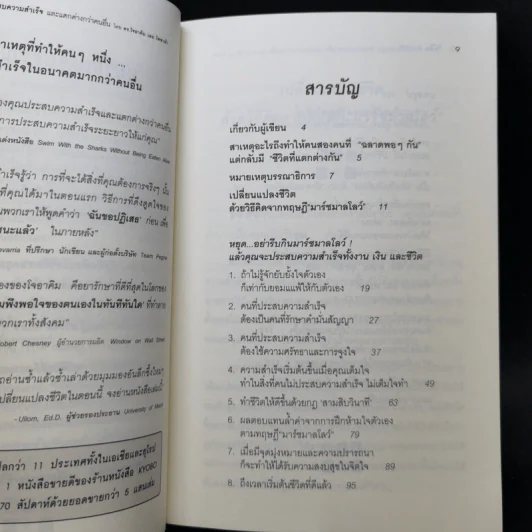 บความสำเร็จ และแตกต่างกว่าคนอื่น
าเหตุที่ทำให้คนๆ หนึ่ง ...
ำเร็จในอนาคตมากกว่าคนอื่น
องคุณประสบความสำเร็จและแตกต่างกว่าคนอื่น
การประสบความสำเร็จระยะยาวให้แก่คุณ"
ต่งหนังสือ Swim With the Sharks Without Being Eaten Alive
ำเร็จรู้ว่า การที่จะได้สิ่งที่คุณต้องการจริงๆ นั้น
ที่คุณได้มาในตอนแรก วิธีการที่ดึงดูดใจของ
นพวกเราให้พูดคำว่า 'ฉันขอปฏิเสธ' ก่อน เพื่อ
นะแล้ว' ในภายหลัง"
ที่ปรึกษา นักเขียน และผู้ก่อตั้งบริษัท
ของของโจอาคิม คือยารักษาที่ดีที่สุดในโลกของ
พึงพอใจของคนเองในทันทีทันใด' ที่ทำลาย
วกเราทั้งสังคม"
obert Chesney ผู้อำนวยการผลิต Window on Wall Street
ถอ่านซ้ำแล้วซ้ำเล่าด้วยมุมมองอันลึกซึ้งใหม่ๆ
ปลี่ยนแปลงชีวิตในตอนนี้ จงอ่านหนังสือเล่มนี้"
-Ullom, Ed.D. ผู้ช่วยรองประธาน University of
ปลกว่า 11 ประเทศทั้งในเอเชียและยุโรป
1 หนังสือขายดีของร้านหนังสือ KYOBO
70 สัปดาห์ด้วยยอดขายกว่า 5 แสนเล่ม
สารบัญ
เกี่ยวกับผู้เขียน 4
สาเหตุอะไรถึงทำให้คนสองคนที่ "ฉลาดพอๆ กัน"
แต่กลับมี "ชีวิตที่แตกต่างกัน" 5
หมายเหตุบรรณาธิการ 7
เปลี่ยนแปลงชีวิต
ด้วยวิธีคิดจากทฤษฎี"มาร์ชมาลโลว์" 11
หยุด...อย่ารีบกินมาร์ชมาลโลว์ !
แล้วคุณจะประสบความสำเร็จทั้งงาน เงิน และชีวิต
1. ถ้าไม่รู้จักยับยั้งใจตัวเอง
ก็เท่ากับยอมแพ้ให้กับตัวเอง 19
2. คนที่ประสบความสำเร็จ
ต้องเป็นคนที่รักษาคำมั่นสัญญา 27
3. คนที่ประสบความสำเร็จ
ต้องใช้ความศรัทธาและการจูงใจ 37
4. ความสำเร็จเริ่มต้นขึ้นเมื่อคุณเต็มใจ
ทำในสิ่งที่คนไม่ประสบความสำเร็จ ไม่เต็มใจทำ 49
5. ทำชีวิตให้ดีขึ้นด้วยกฎ 'สามสิบวินาที' 63
6. ผลตอบแทนล้ำค่าจากการฝึกห้ามใจตัวเอง
ตามทฤษฎี"มาร์ชมาลโลว์" 79
7. เมื่อมีจุดมุ่งหมายและความปรารถนา
ก็จะทำให้ได้รับความสงบสุขในจิตใจ 89
8. ถึงเวลาเริ่มต้นชีวิตที่ดีแล้ว 95